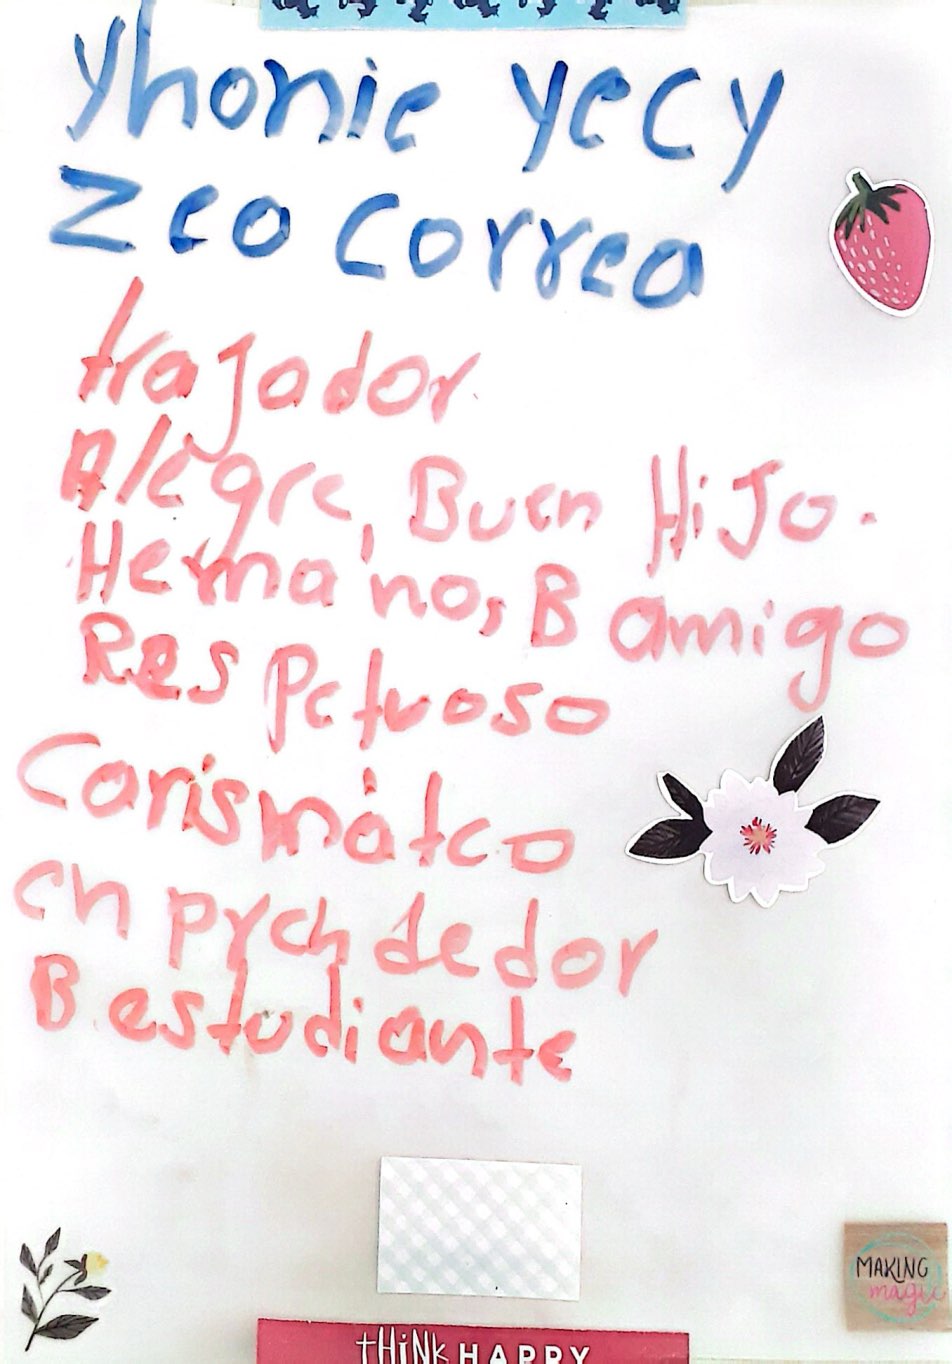 yhonie yecy
Zeo Correa
trajador.
Alegre, Buen HiJo.
Hermano, B amigo
Res Petuoso
Carismátco
en prendedor
B estudiante
MAKING
magic
tHiNk HAPPY